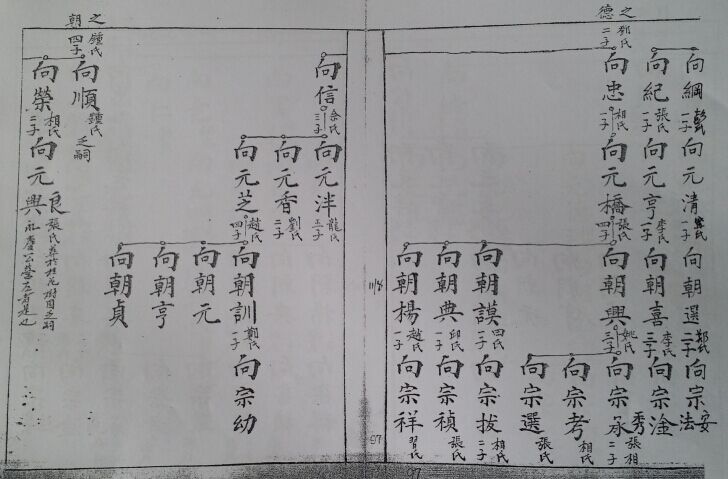 德之
鄧氏
二子
向綱
彭氏
一子
向元清
向朝選
鄭氏
二子
向宗法
安
向紀
張氏
一子
向元亨
李氏
一子
向朝喜
李氏
三子
向宗淦
秀
向忠
相氏
一子
向元橋
張氏
四子
向朝興
姚氏
三子
向宗承
張相
二子
向宗考
相氏
向宗選
張氏
向朝謨
田氏
一子
向宗拔
相氏
二子
向朝典
邱氏
一子
向宗禎
張氏
向朝楊
趙氏
一子
向宗祥
習氏
11/8
97
97
向信
余氏
三子
向元泮
龍氏
向元香
劉氏
二子
向元芝
趙氏
四子
向朝訓
鄭氏
一子
向宗幼
向朝元
向朝亨
向朝貞
朝之
鍾氏
四子
向順
鍾氏
乏嗣
向榮
相氏
二子
向元興
良